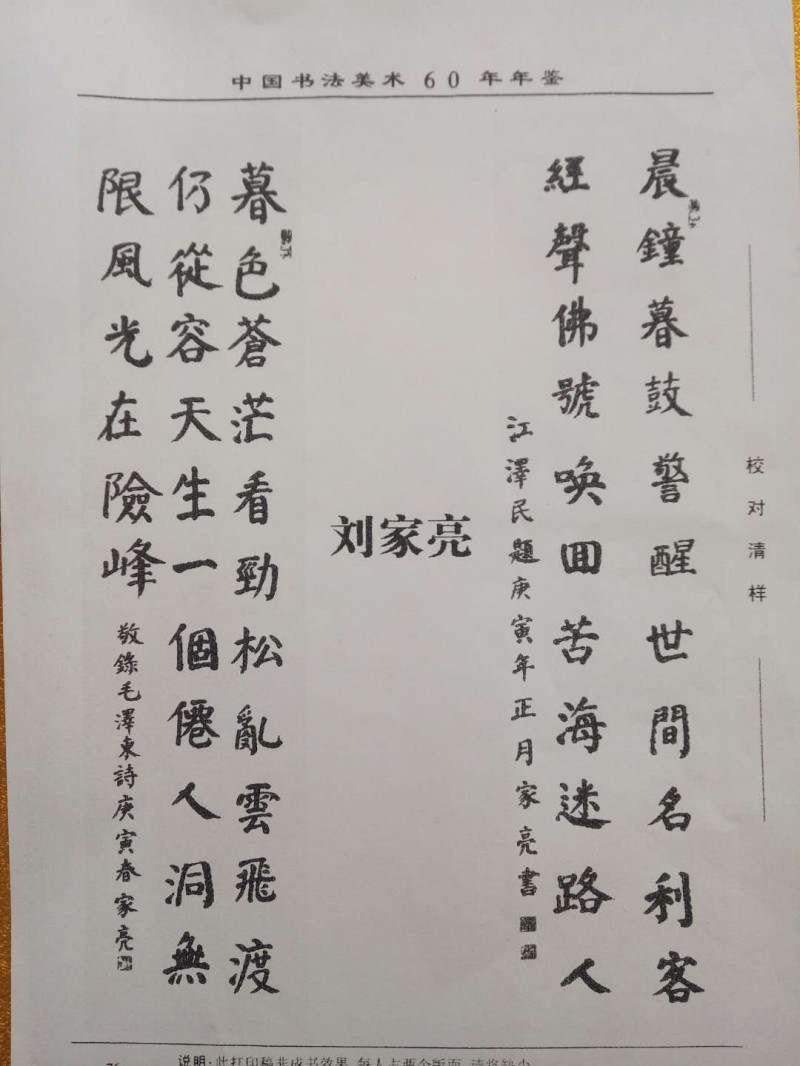 中国书法美术60年年鉴
晨鐘暮鼓警醒世間名利客
經聲佛號唤囬苦海迷路人
江澤民題庚寅年正月家亮書
刘家亮
暮色蒼茫看勁松亂雲飛渡
仍從容天生一個僊人洞無
限風光在險峰
敬錄毛澤東詩庚寅春家亮
校对清样
说明:此打印稿非成书效果,每人占两个版面,请将